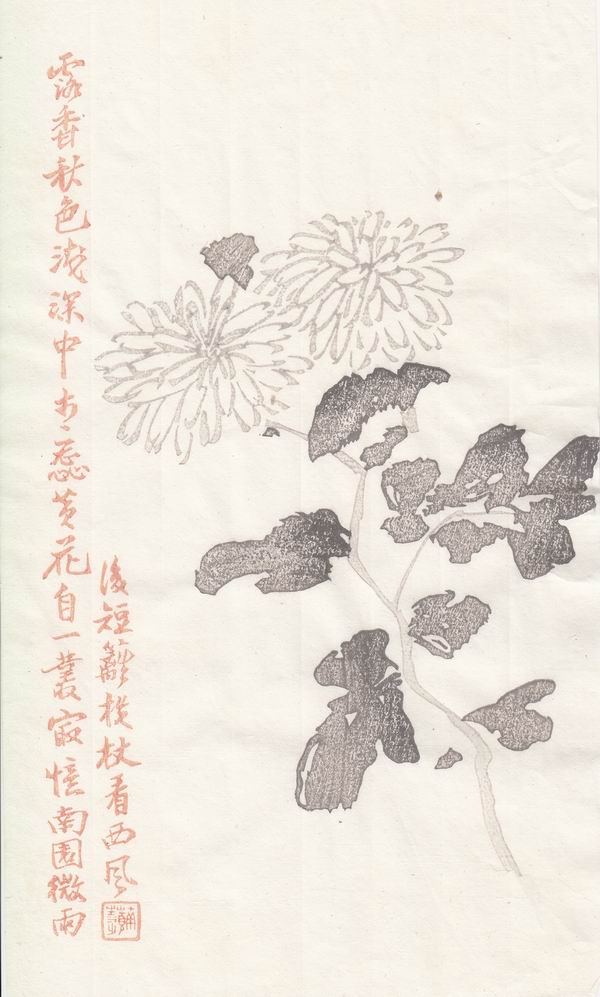 露香秋色淺深中蕊黃花自一叢寂憶南園微雨
後短籬杖看西風